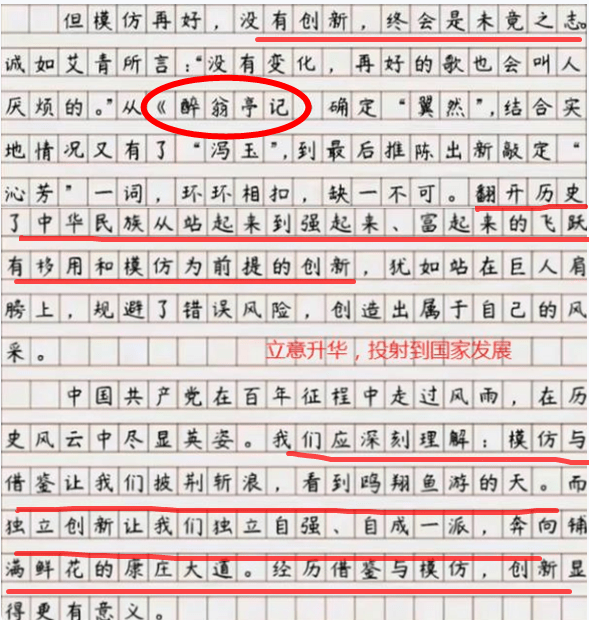 但模仿再好，没有创新，终会是未竟之志。
诚如艾青所言：“没有变化，再好的歌也会叫人
厌烦的。”从《醉翁亭记 确定“翼然”，结合实
地情况又有了“泻玉”，到最后推陈出新敲定“
沁芳”一词，环环相扣，缺一不可。翻开历史
了中华民族从站起来到强起来、富起来的飞跃
有移用和模仿为前提的创新，犹如站在巨人肩
膀上，规避了错误风险，创造出属于自己的风
采。
立意升华，投射到国家发展
中国共产党在百年征程中走过风雨，在历
史风云中尽显英姿。我们应深刻理解：模仿与
借鉴让我们披荆斩浪，看到鸥翔鱼游的天。而
独立创新让我们独立自强、自成一派，奔向铺
满鲜花的康庄大道。经历借鉴与模仿，创新显
得更有意义。